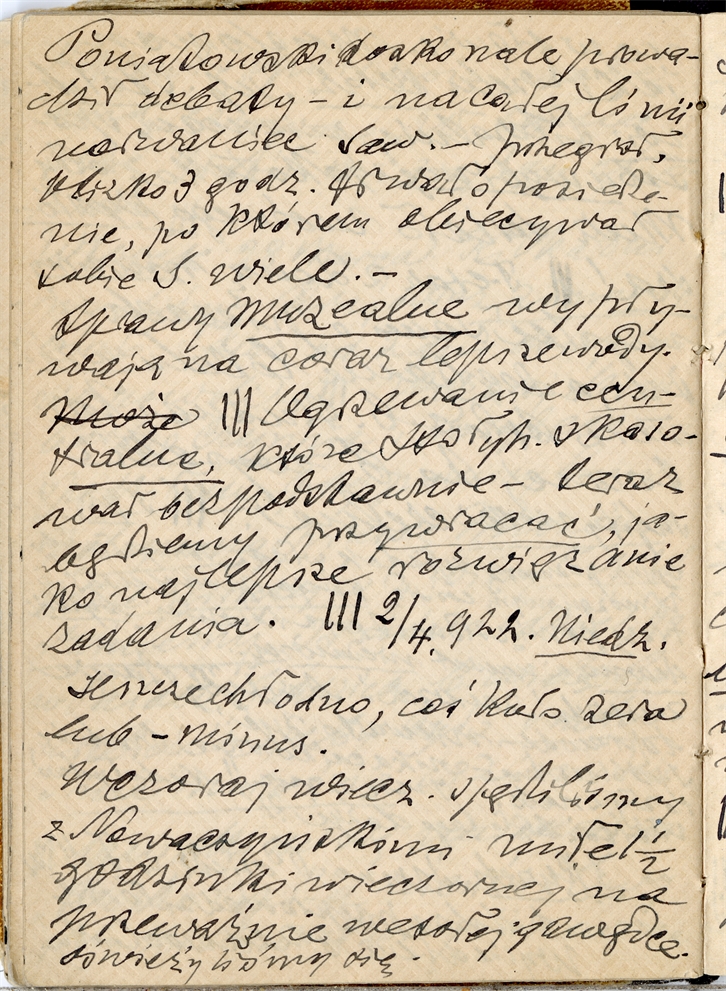 Poniatowski doskonale prowa-
dził debaty – i na całej linii
Saw. – przegrał,
blizko 3 godz. trwało posiedze-
nie, po którem obiecywał
sobie S. wiele. –
Sprawy muzealne wypły-
wają na coraz lepsze wody.
Może ||| Ogrzewanie cen-
tralne, które skaso-
wał bezpodstawnie – teraz
będziemy przywracać, ja-
ko najlepsze rozwiązanie
zadania. ||| 2/4. 922. Niedz.
Jeszcze chłodno, coś koło zera
lub – minus.
Wczoraj wiecz. spędziliśmy
z Nowaczyńskimi miłe 1 1/2
godzinki wieczornej na
przeważnie wesołej gawędce.
odświeżyliśmy się.